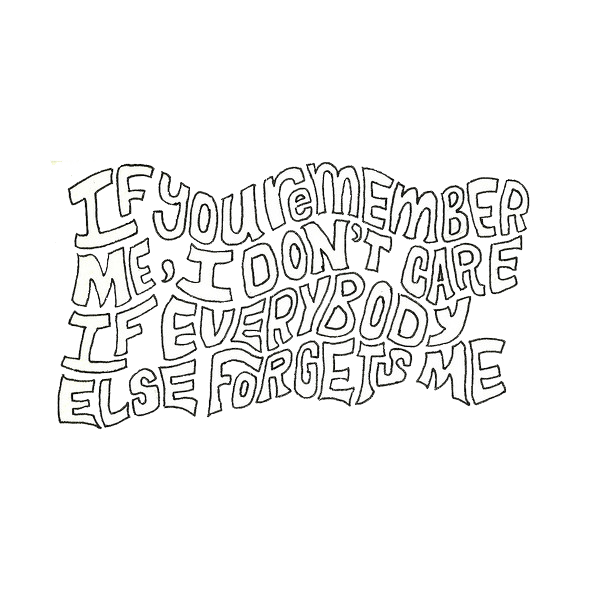 If youremEMBER
ME, I DON'T CARE
IF EVERYBODY
ELSE FORGETS ME